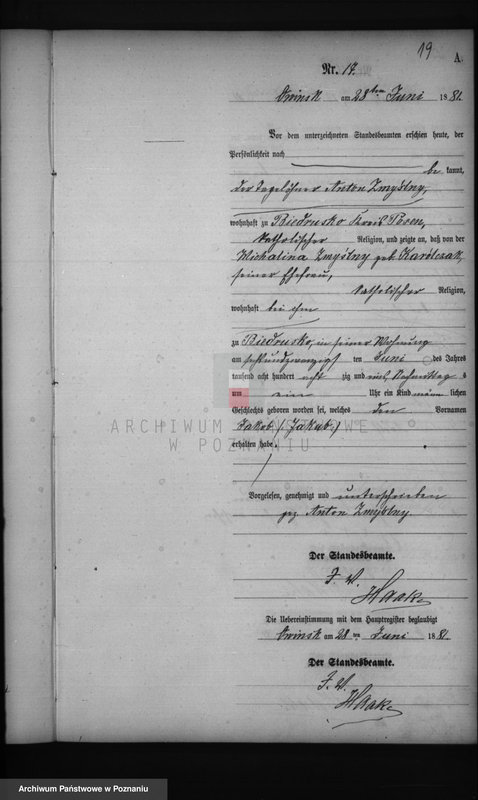 19
A.
Nr. 17.
Owinsk am 28ten Juni 1881.
Vor dem unterzeichneten Standesbeamten erschien heute, der
Persönlichkeit nach
be kannt,
der Tagelöhner Anton Zmyślny,
wohnhaft zu Biedrusko Kreis Posen,
katholischer Religion, und zeigte an, daß von der
Michalina Zmyślny geb. Karolczak,
seiner Ehefrau,
katholischer Religion,
wohnhaft bei ihm
zu Biedrusko, in seiner Wohnung
am sechsundzwanzigsten Juni des Jahres
tausend acht hundert acht zig und eins, Nachmittag s
um ein Uhr ein Kind männ lichen
Geschlechts geboren worden sei, welches den Vornamen
Jakob (: Jakub :)
erhalten habe.
ARCHIWUM PAŃSTWOWE
W POZNANIU
Vorgelesen, genehmigt und unterschrieben
gez. Anton Zmyślny.
Der Standesbeamte.
J. V.
Haake
Die Uebereinstimmung mit dem Hauptregister beglaubigt
Owinsk am 28ten Juni 1881.
Der Standesbeamte.
J. V.
Haake
Archiwum Państwowe w Poznaniu